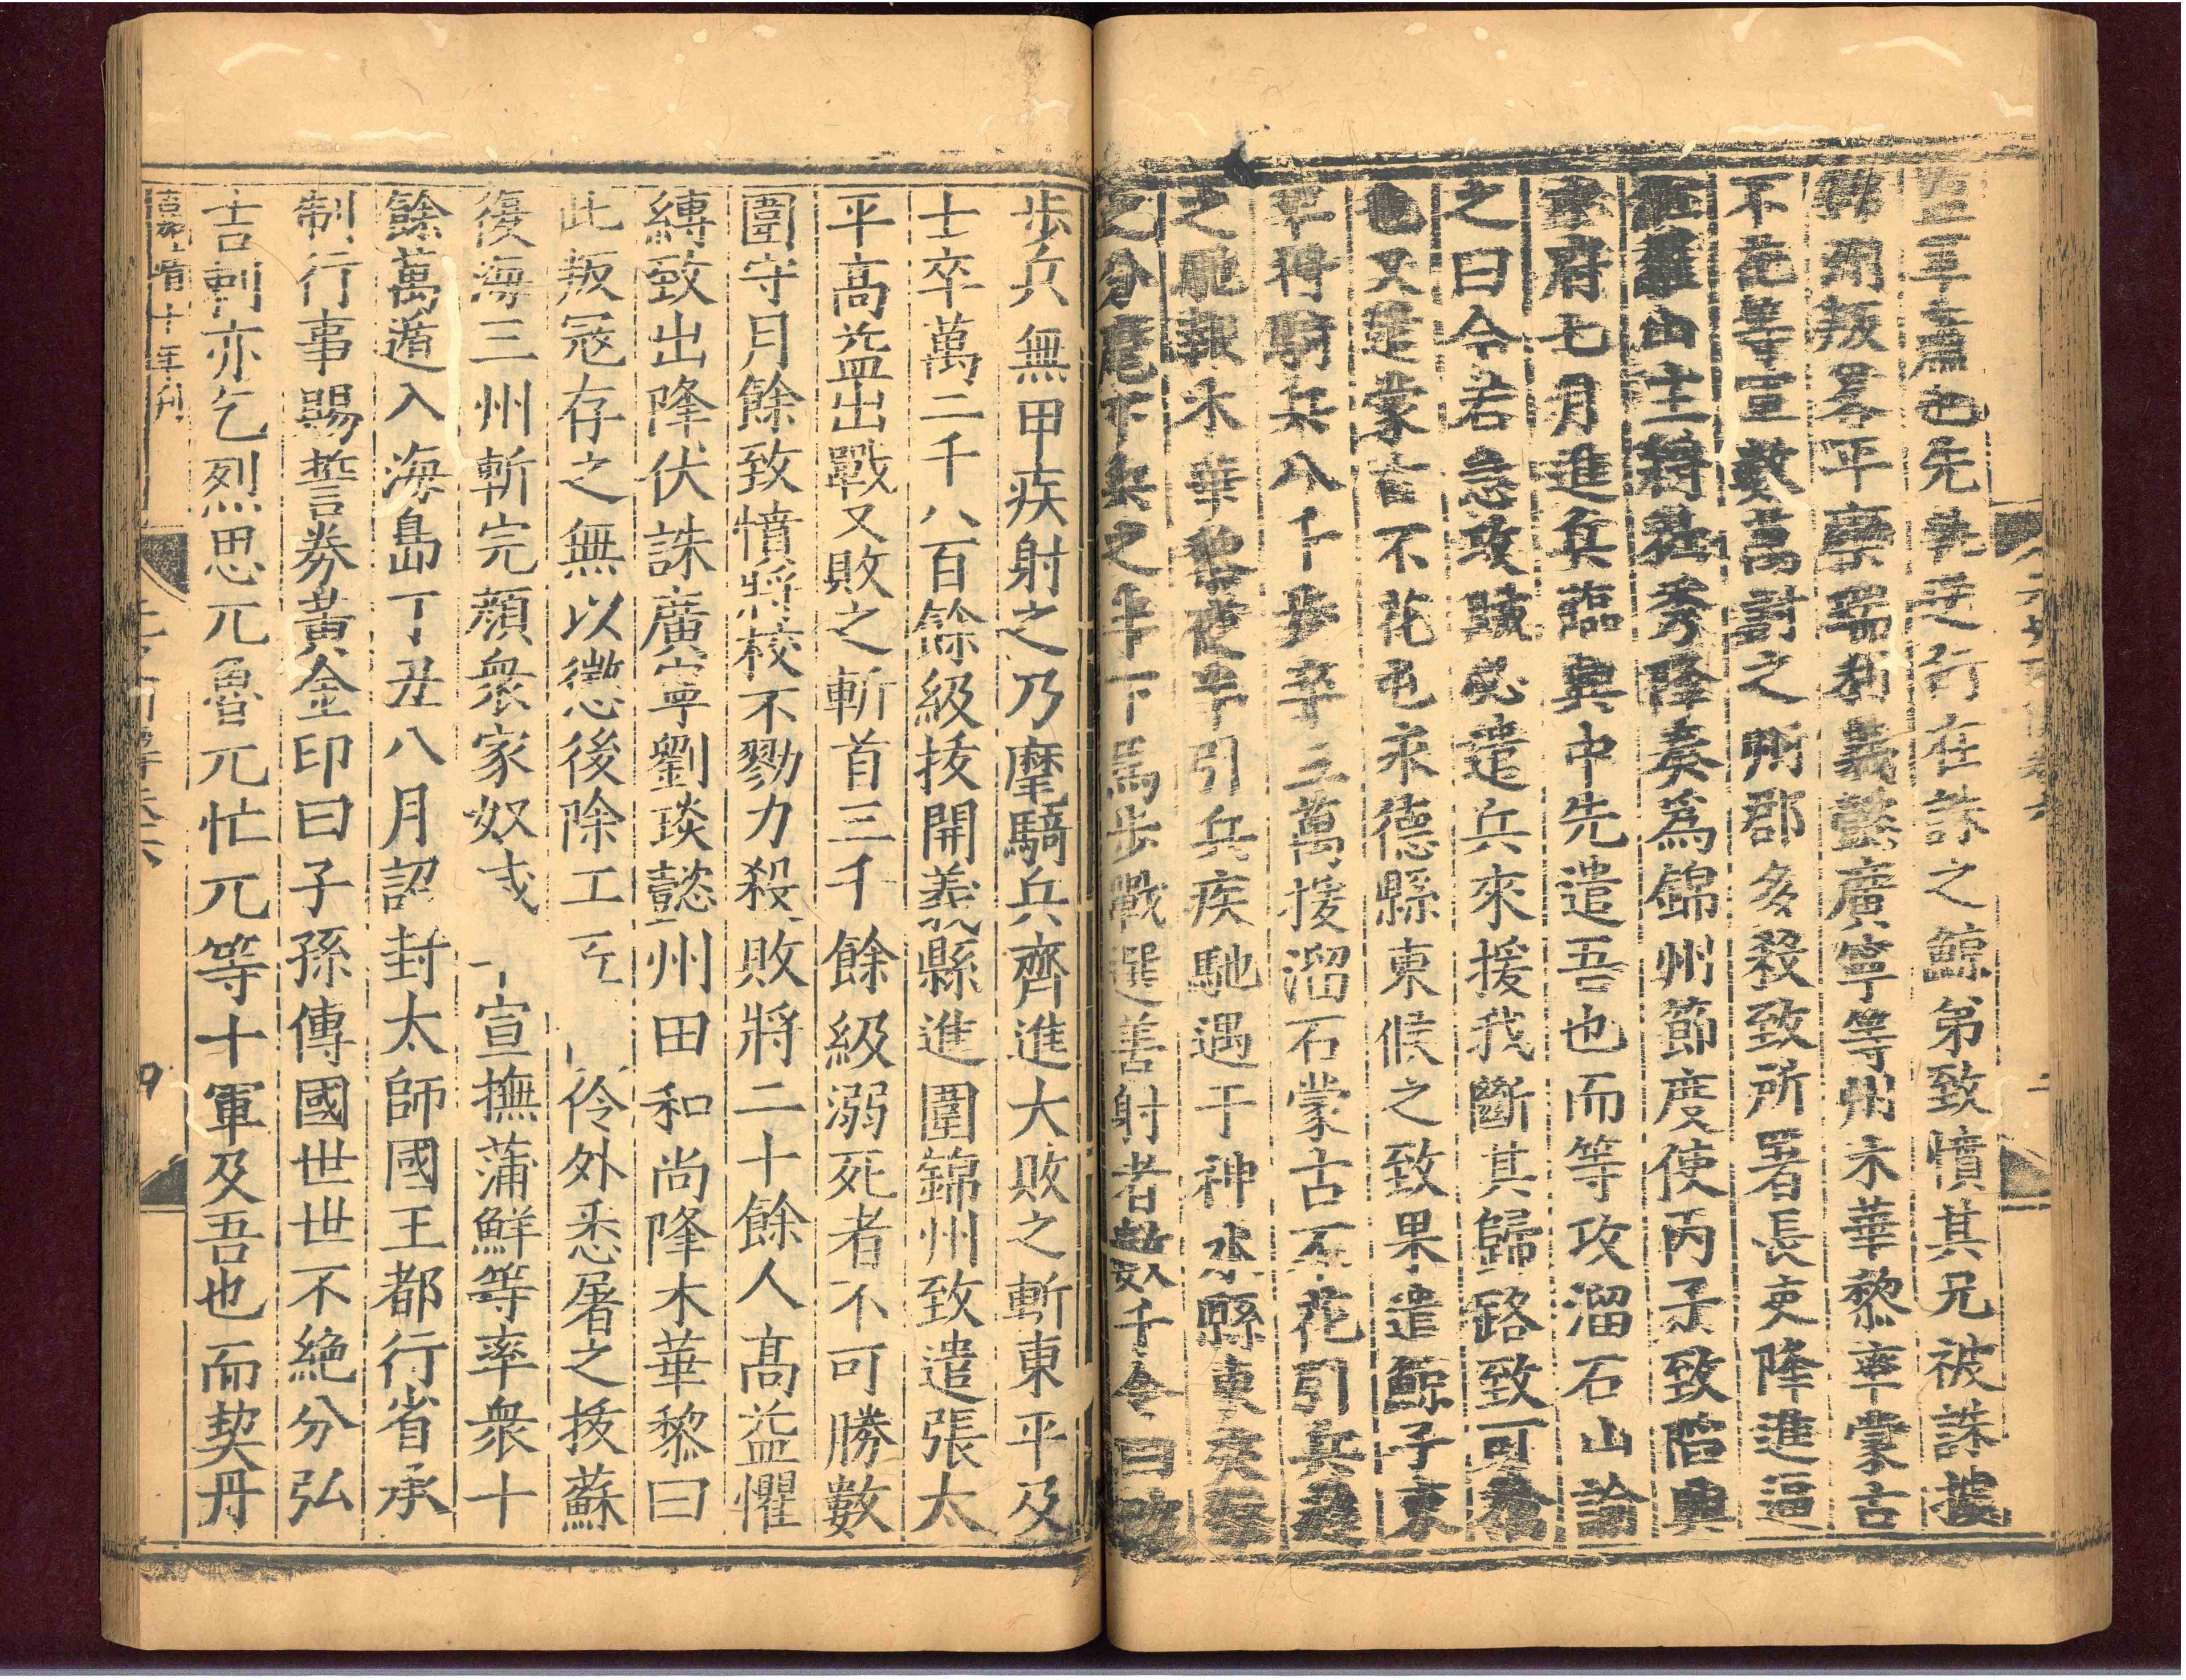 至平州石先執送行在誅之鯨弟致憤其兄被誅據
錦州叛略平灤瑞利義懿廣寧等州木華黎率蒙古
不花等軍數萬討之州郡多殺致所署長吏降進逼
紅羅山主將杜秀降奏爲錦州節度使丙子致陷興
中府七月進兵臨興中先遣吾也而等攻溜石山諭
之曰今若急攻賊必遣兵來援我斷其歸路致可擒
也又遣蒙古不花屯永德縣東候之致果遣鯨子東
平將騎兵八千步卒三萬援溜石蒙古不花引兵趨
之馳報木華黎夜半引兵疾馳遇于神水縣東夾擊
之分麾下兵之半下馬步戰選善射者數千令曰賊
步兵無甲疾射之乃麾騎兵齊進大敗之斬東平及
士卒萬二千八百餘級拔開義縣進圍錦州致遣張太
平高益出戰又敗之斬首三千餘級溺死者不可勝數
圍守月餘致憤將校不勠力殺敗將二十餘人高益懼
縛致出降伏誅廣寧劉琰懿州田和尚降木華黎曰
此叛冦存之無以懲後除工 伶外悉屠之拔蘇
復海三州斬完顏衆家奴 宣撫蒲鮮等率衆十
餘萬遁入海島丁丑八月詔封太師國王都行省承
制行事賜誓券黃金印曰子孫傳國世世不絶分弘
吉剌亦乞烈思兀魯兀忙兀等十軍及吾也而契丹
嘉靖十年刊